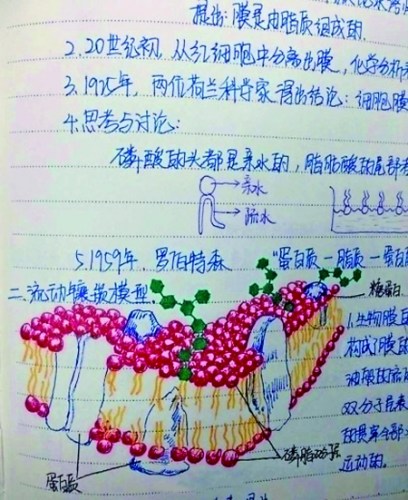 提出:膜是由脂质组成的.
2.20世纪初,从红细胞中分离出膜,化学分析
3.1925年,两位荷兰科学家得出结论:细胞膜
4.思考与讨论:
磷酸的头部是亲水的,脂肪酸的尾部
亲水
疏水
5.1959年,罗伯特森 "蛋白质—脂质—蛋白
二.流动镶嵌模型
糖蛋白
1.生物膜
构成了膜的
双分子层
运动的.
蛋白质
磷脂